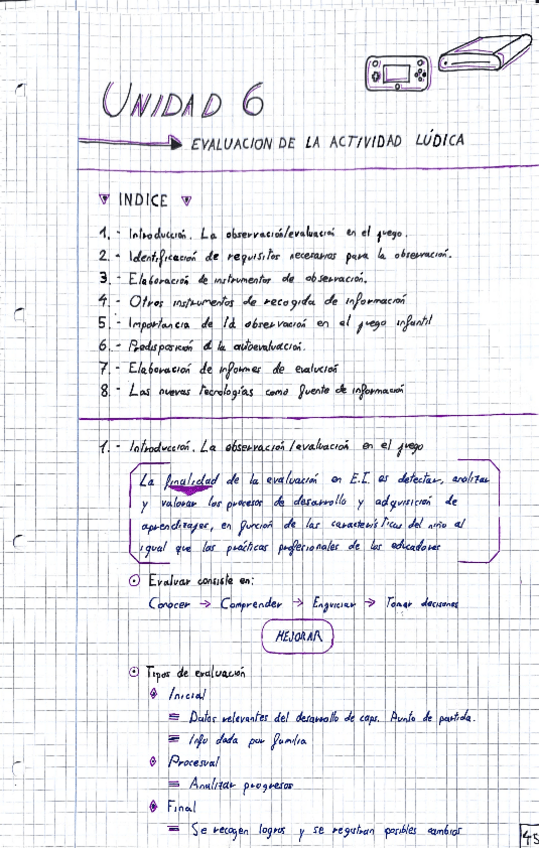 UNIDAD 6
EVALUACION DE LA ACTIVIDAD LÚDICA
INDICE
1.- Introducción. La observación/evaluación en el juego.
2.- Identificación de requisitos necesarios para la observación.
3.- Elaboración de instrumentos de observación.
4.- Otros instrumentos de recogida de información
5.- Importancia de la observación en el juego infantil
6.- Predisposición a la autoevaluación.
7.- Elaboración de informes de evalución
8.- Las nuevas tecnologías como fuente de información
1.- Introducción. La observación/evaluación en el juego
La finalidad de la evaluación en E.I. es detectar, analizar
y valorar los procesos de desarrollo y adquisición de
aprendizajes, en función de las características del niño al
igual que las prácticas profesionales de los educadores
Evaluar consiste en:
Conocer → Comprender → Enjuiciar → Tomar decisiones
MEJORAR
Tipos de evaluación
Inicial
Datos relevantes del desarrollo de caps. Punto de partida.
Info dada por familia
Procesual
Analizar progresos
Final
Se recogen logros y se registran posibles cambios
45